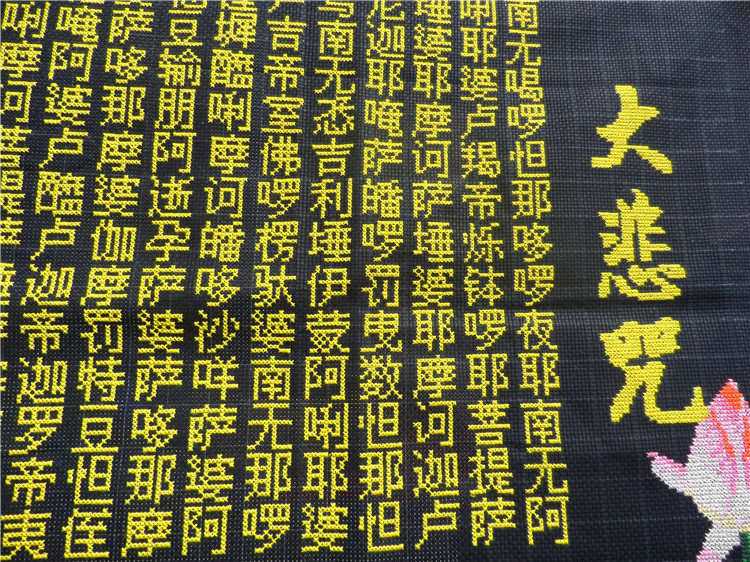 大悲咒
南无喝啰怛那哆啰夜耶南无阿
唎耶婆卢羯帝烁钵啰耶菩提萨
埵婆耶摩诃萨埵婆耶摩诃迦卢
迦耶唵萨皤啰罚曳数怛那怛
南无悉吉利埵伊蒙阿唎耶婆
吉帝室佛啰楞驮婆南无那啰
醯唎摩诃皤哆沙咩萨婆阿
豆输朋阿逝孕萨婆萨哆那摩
萨哆那摩婆伽摩罚特豆怛侄
唵阿婆卢醯卢迦帝迦罗帝夷
唎摩诃菩